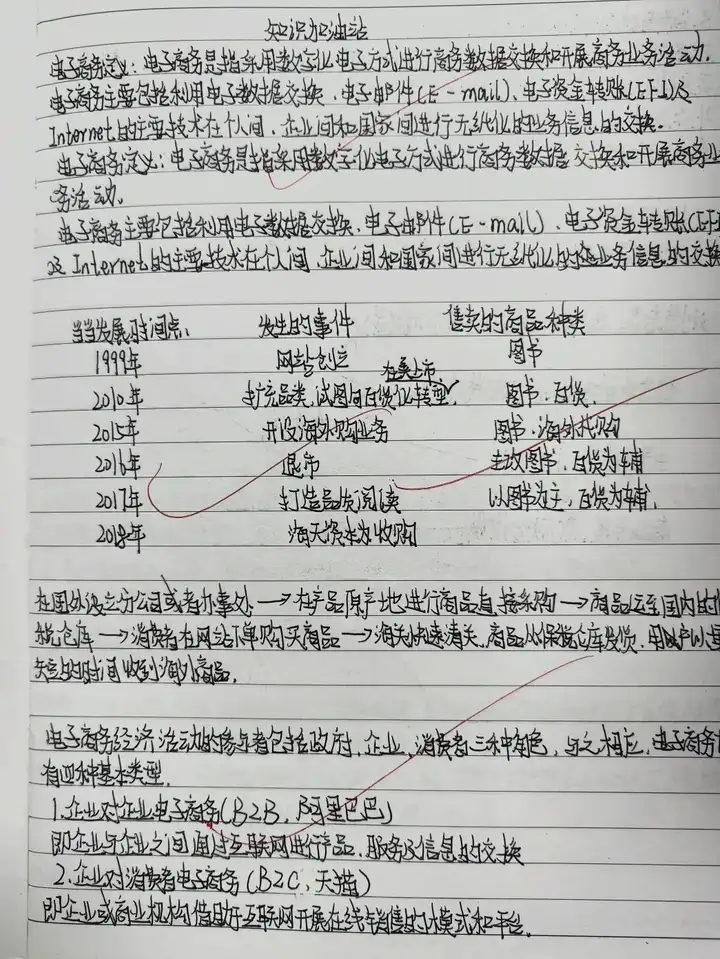 知识加油站
电子商务定义:电子商务是指采用数字化电子方式进行商务数据交换和开展商务业务活动.
电子商务主要包括利用电子数据交换、电子邮件(E-mail)、电子资金转账(EFT)及
Internet的主要技术在个人间、企业间和国家间进行无纸化的业务信息的交换。
电子商务定义:电子商务是指采用数字化电子方式进行商务数据交换和开展商务业
务活动.
电子商务主要包括利用电子数据交换、电子邮件(E-mail)、电子资金转账(EFT
及Internet的主要技术在个人间、企业间和国家间进行无纸化的业务信息的交换
当当发展时间点 发生的事件 售卖的商品种类
1999年 网站创立 图书
2010年 扩充品类,试图向百货化转型 在美上市 图书、百货.
2015年 开设海外购业务 图书、海外代购
2016年 退市 主攻图书,百货为辅
2017年 打造品质阅读 以图书为主,百货为辅.
2018年 海天资本为收购
在国外设立分公司或者办事处→在产品原产地进行商品直接采购→商品运至国内的
税仓库→消费者在网站下单购买商品→海关快速清关,商品从保税仓库发货,用户以
短的时间收到海外商品.
电子商务经济活动的参与者包括政府、企业、消费者三种角色,与之相应,电子商务
有四种基本类型.
1.企业对企业电子商务(B2B,阿里巴巴)
即企业与企业之间通过互联网进行产品、服务及信息的交换
2.企业对消费者电子商务(B2C,天猫)
即企业或商业机构借助于互联网开展在线销售的模式和平台.